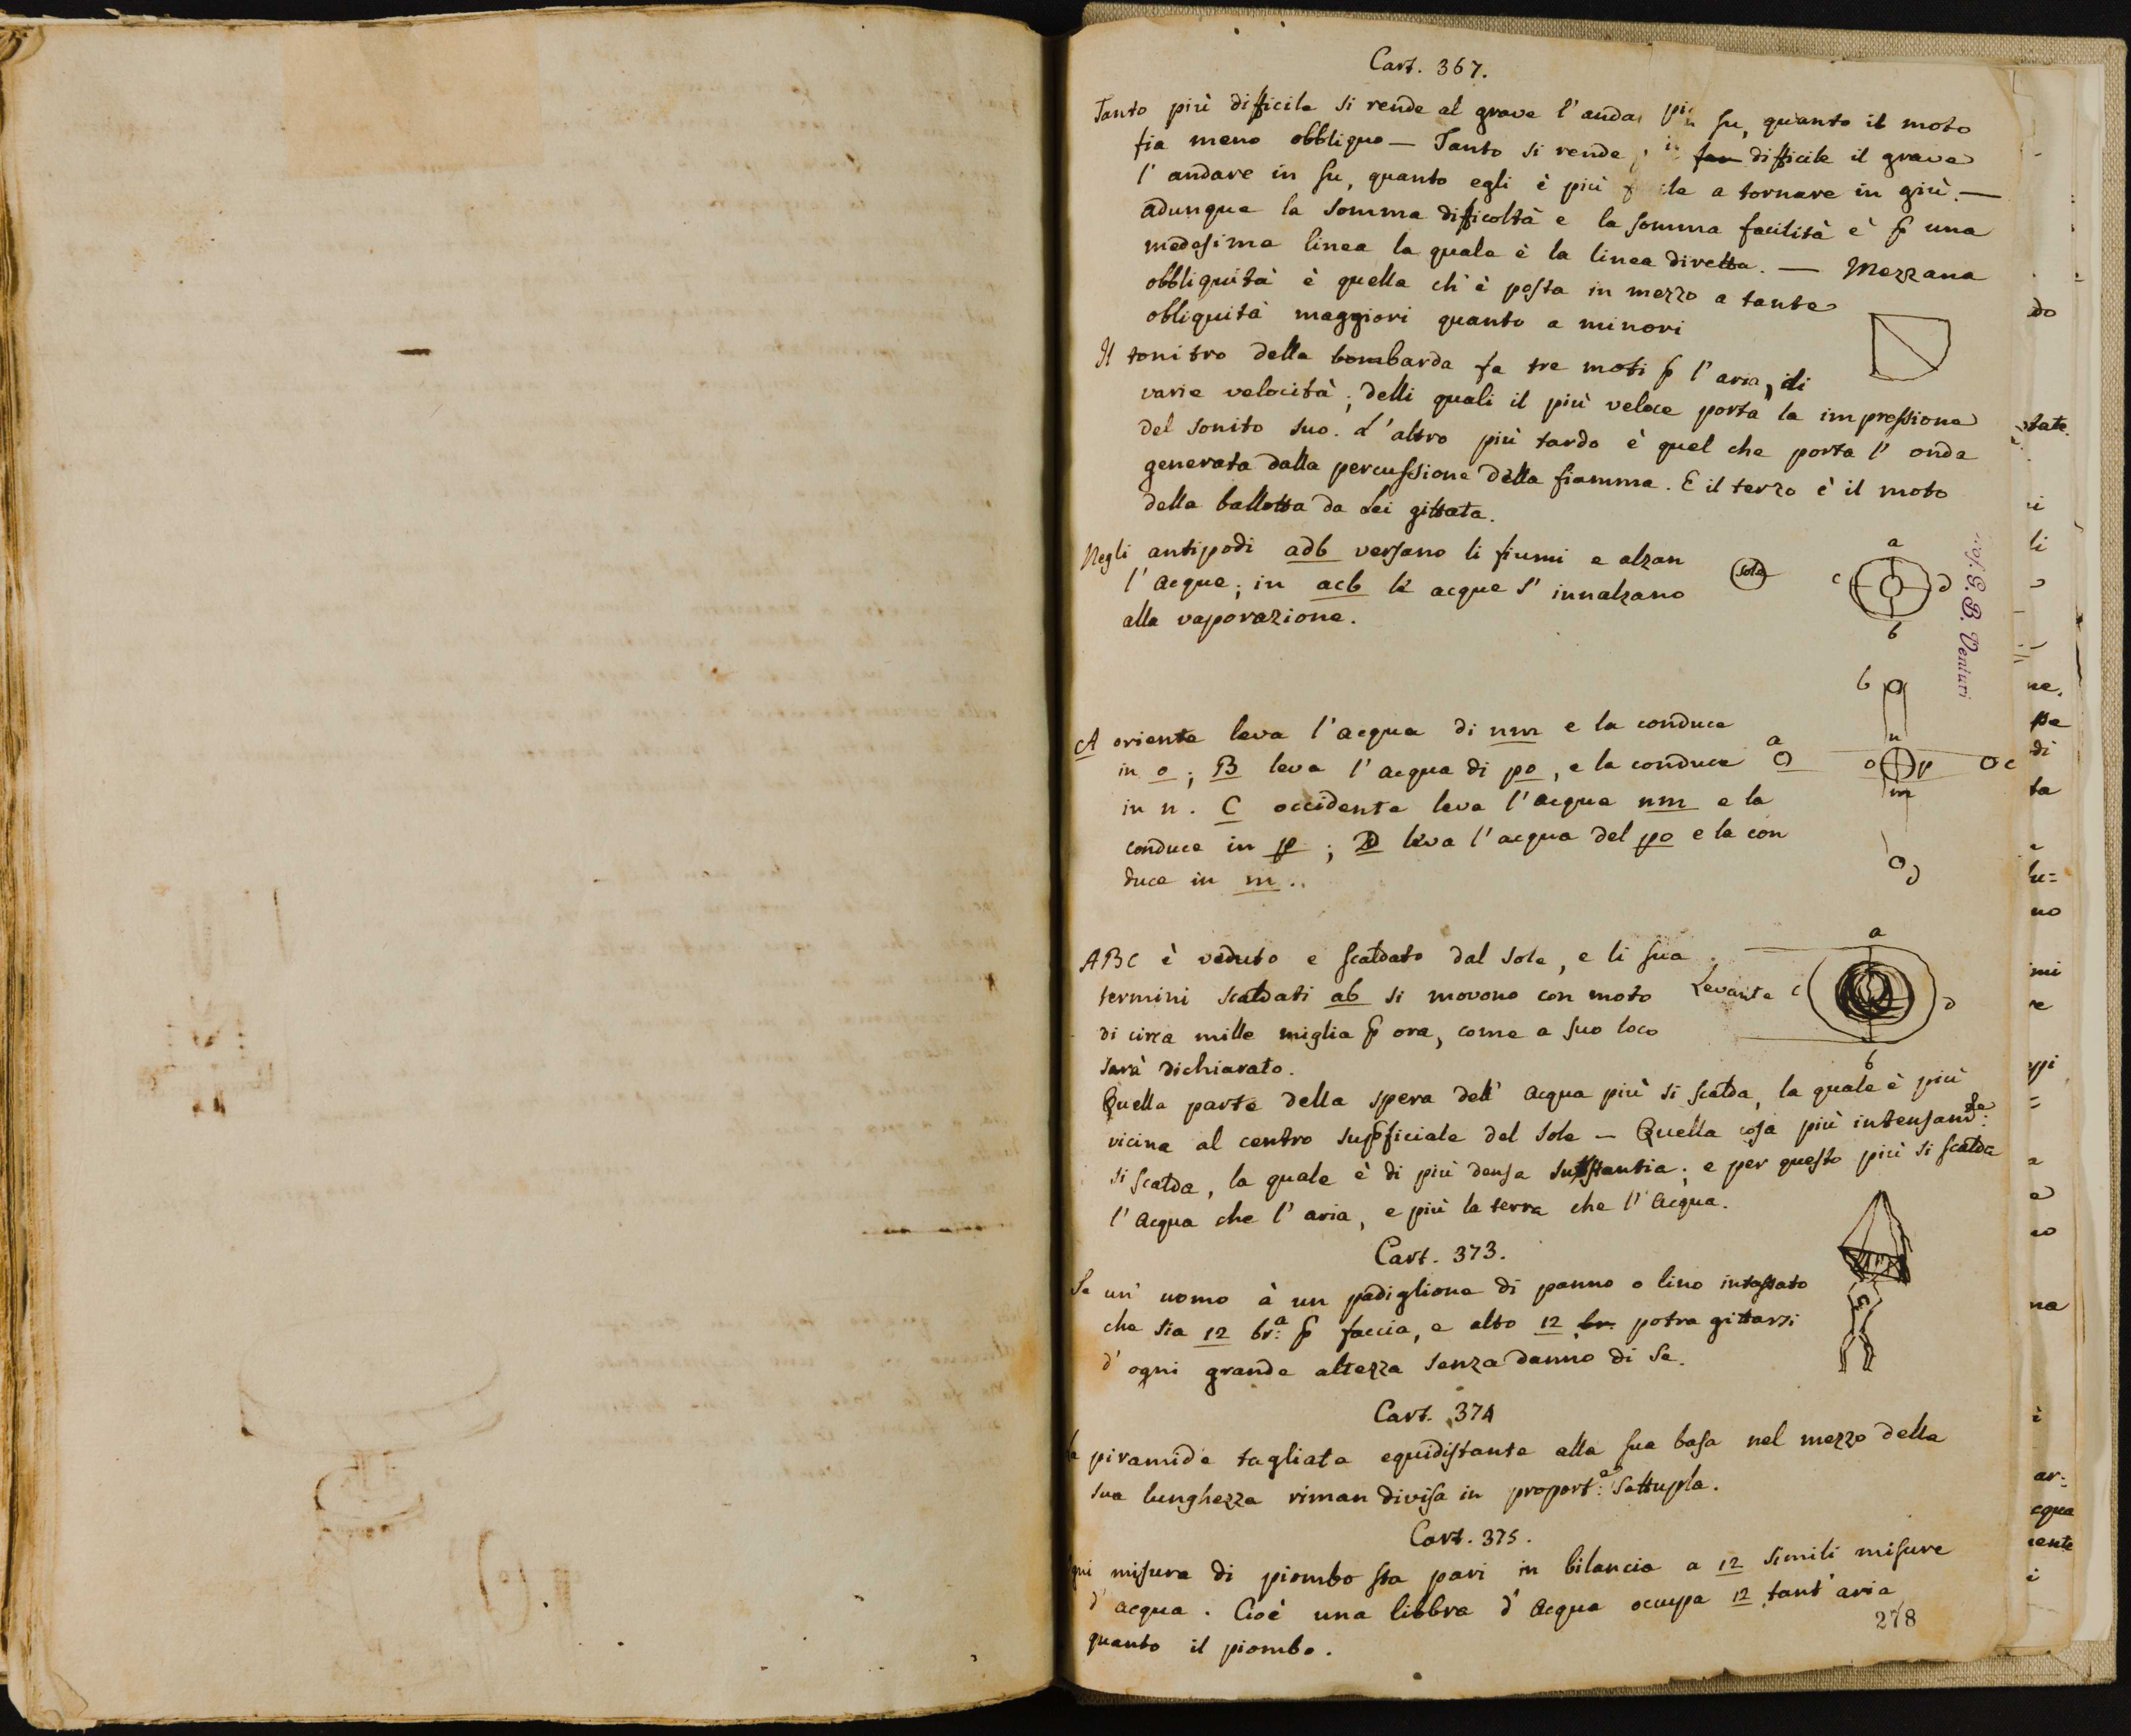 Cart. 367.
Tanto più difficile si rende al grave l'andar più su, quanto il moto
fia meno obbliquo — Tanto si rende difficile il grave
l'andare in su, quanto egli è più facile a tornare in giù. —
adunque la somma difficoltà e la somma facilità è ꝑ una
medesima linea la quale è la linea diretta. — Mezzana
obbliquità è quella ch'è posta in mezzo a tante
obliquità maggiori quanto a minori
Il tonitro della bombarda fa tre moti ꝑ l'aria, di
varie velocità; delli quali il più veloce porta la impressione
del sonito suo. L'altro più tardo è quel che porta l'onda
generata dalla percussione della fiamma. E il terzo è il moto
della ballotta da Lei gittata.
Negli antipodi adb versano li fiumi e alzan
l'acque; in acb le acque s'innalzano
alla vaporazione.
Sole
a
c
d
b
G. B. Venturi
A oriente leva l'acqua di nm e la conduce
in o; B leva l'acqua di po, e la conduce
in n. C occidente leva l'acqua nm e la
conduce in p; D leva l'acqua del po e la con
duce in m..
b
a
n
o
p
c
m
d
ABC è veduto e scaldato dal sole, e li sua
termini scaldati ab si movono con moto
di circa mille miglia ꝑ ora, come a suo loco
sarà dichiarato.
a
Levante c
d
b
Quella parte della spera dell'acqua più si scalda, la quale è più
vicina al centro suꝑficiale del sole — Quella cosa più intensam:te
si scalda, la quale è di più densa sustantia; e per questo più si scalda
l'acqua che l'aria, e più la terra che l'acqua.
Cart. 373.
Se un'uomo à un padiglione di panno o lino intassato
che sia 12 br:a ꝑ faccia, e alto 12 br. potra gittarsi
d'ogni grande altezza senza danno di se.
Cart. 374
piramide tagliata equidistante alla sua basa nel mezzo della
sua lunghezza riman divisa in proport:e settupla.
Cart. 375.
misura di piombo sta pari in bilancia a 12 simili misure
d'acqua. Cioè una libbra d'acqua occupa 12 tant'aria
quanto il piombo.
278